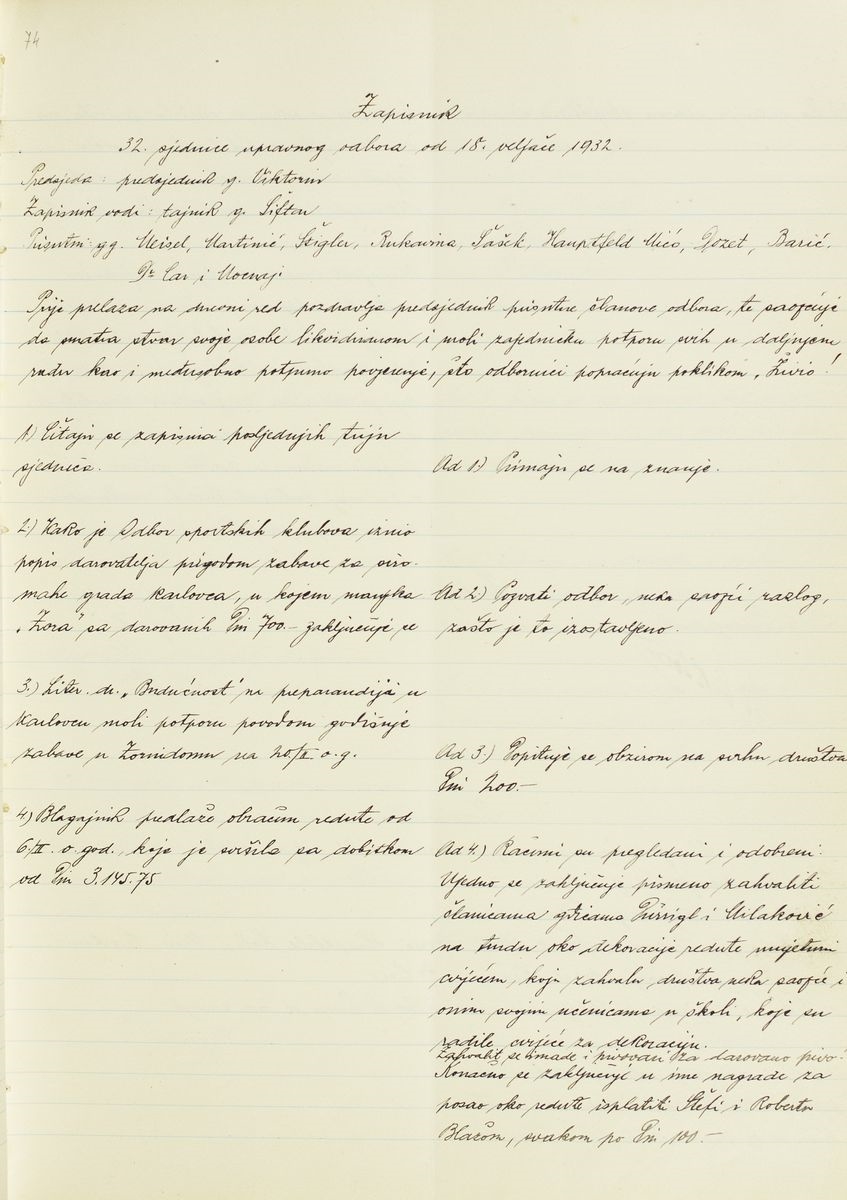 74
Zapisnik
32. sjednice upravnog odbora od 18. veljače 1932.
Predsjeda: predsjednik g. Viktorin
Zapisnik vodi: tajnik g. Šiftar
Prisutni: gg. Meisel, Martinić, Štigler, Rukavina, Tašek, Hauptfeld Mićo, Dozet, Barić.
Dr. Car i Mocnaj.
Prije prelaza na dnevni red pozdravlja predsjednik prisutne članove odbora, te saopćuje
da smatra stvar svoje osobe likvidiranom i moli zajedničku potporu svih u daljnjem
radu kao i međusobno potpuno povjerenje, što odbornici popraćuju poklikom „Živio!
1) Čitaju se zapisnici posljednjih triju
sjednica.
Ad 1.) Primaju se na znanje.
2.) Kako je Odbor sportskih klubova iznio
popis darovatelja prigodom zabave za siro-
mahe grada Karlovca, u kojem manjka
„Zora" sa darovanih Din 700.- zaključuje se
Ad 2) Pozvati odbor, neka saopći razlog,
zašto je to izostavljeno.
3.) Liter. dr. „Budućnost" na preparandiji u
Karlovcu moli potporu povodom godišnje
zabave u Zorindomu na 20./II. o. g.
Ad 3.) Dopituje se obzirom na svrhu društva
Din 200.-
4.) Blagajnik predlaže obračun redute od
6./II. o. god., koja je svršila sa dobitkom
od Din 3.145.75
Ad 4.) Računi su pregledani i odobreni.
Ujedno se zaključuje pismeno zahvaliti
članicama gđicama Dürrigl i Milaković
na trudu oko dekoracije redute umjetnim
cvijećem, koju zahvalu društva neka saopće i
onim svojim učenicama u školi, koje su
radile cvijeće za dekoraciju.
Zahvalit se imade i pivovari za darovano pivo.
Konačno se zaključuje u ime nagrade za
posao oko redute isplatiti Štefi i Robertu
Blažom, svakom po Din 100.-